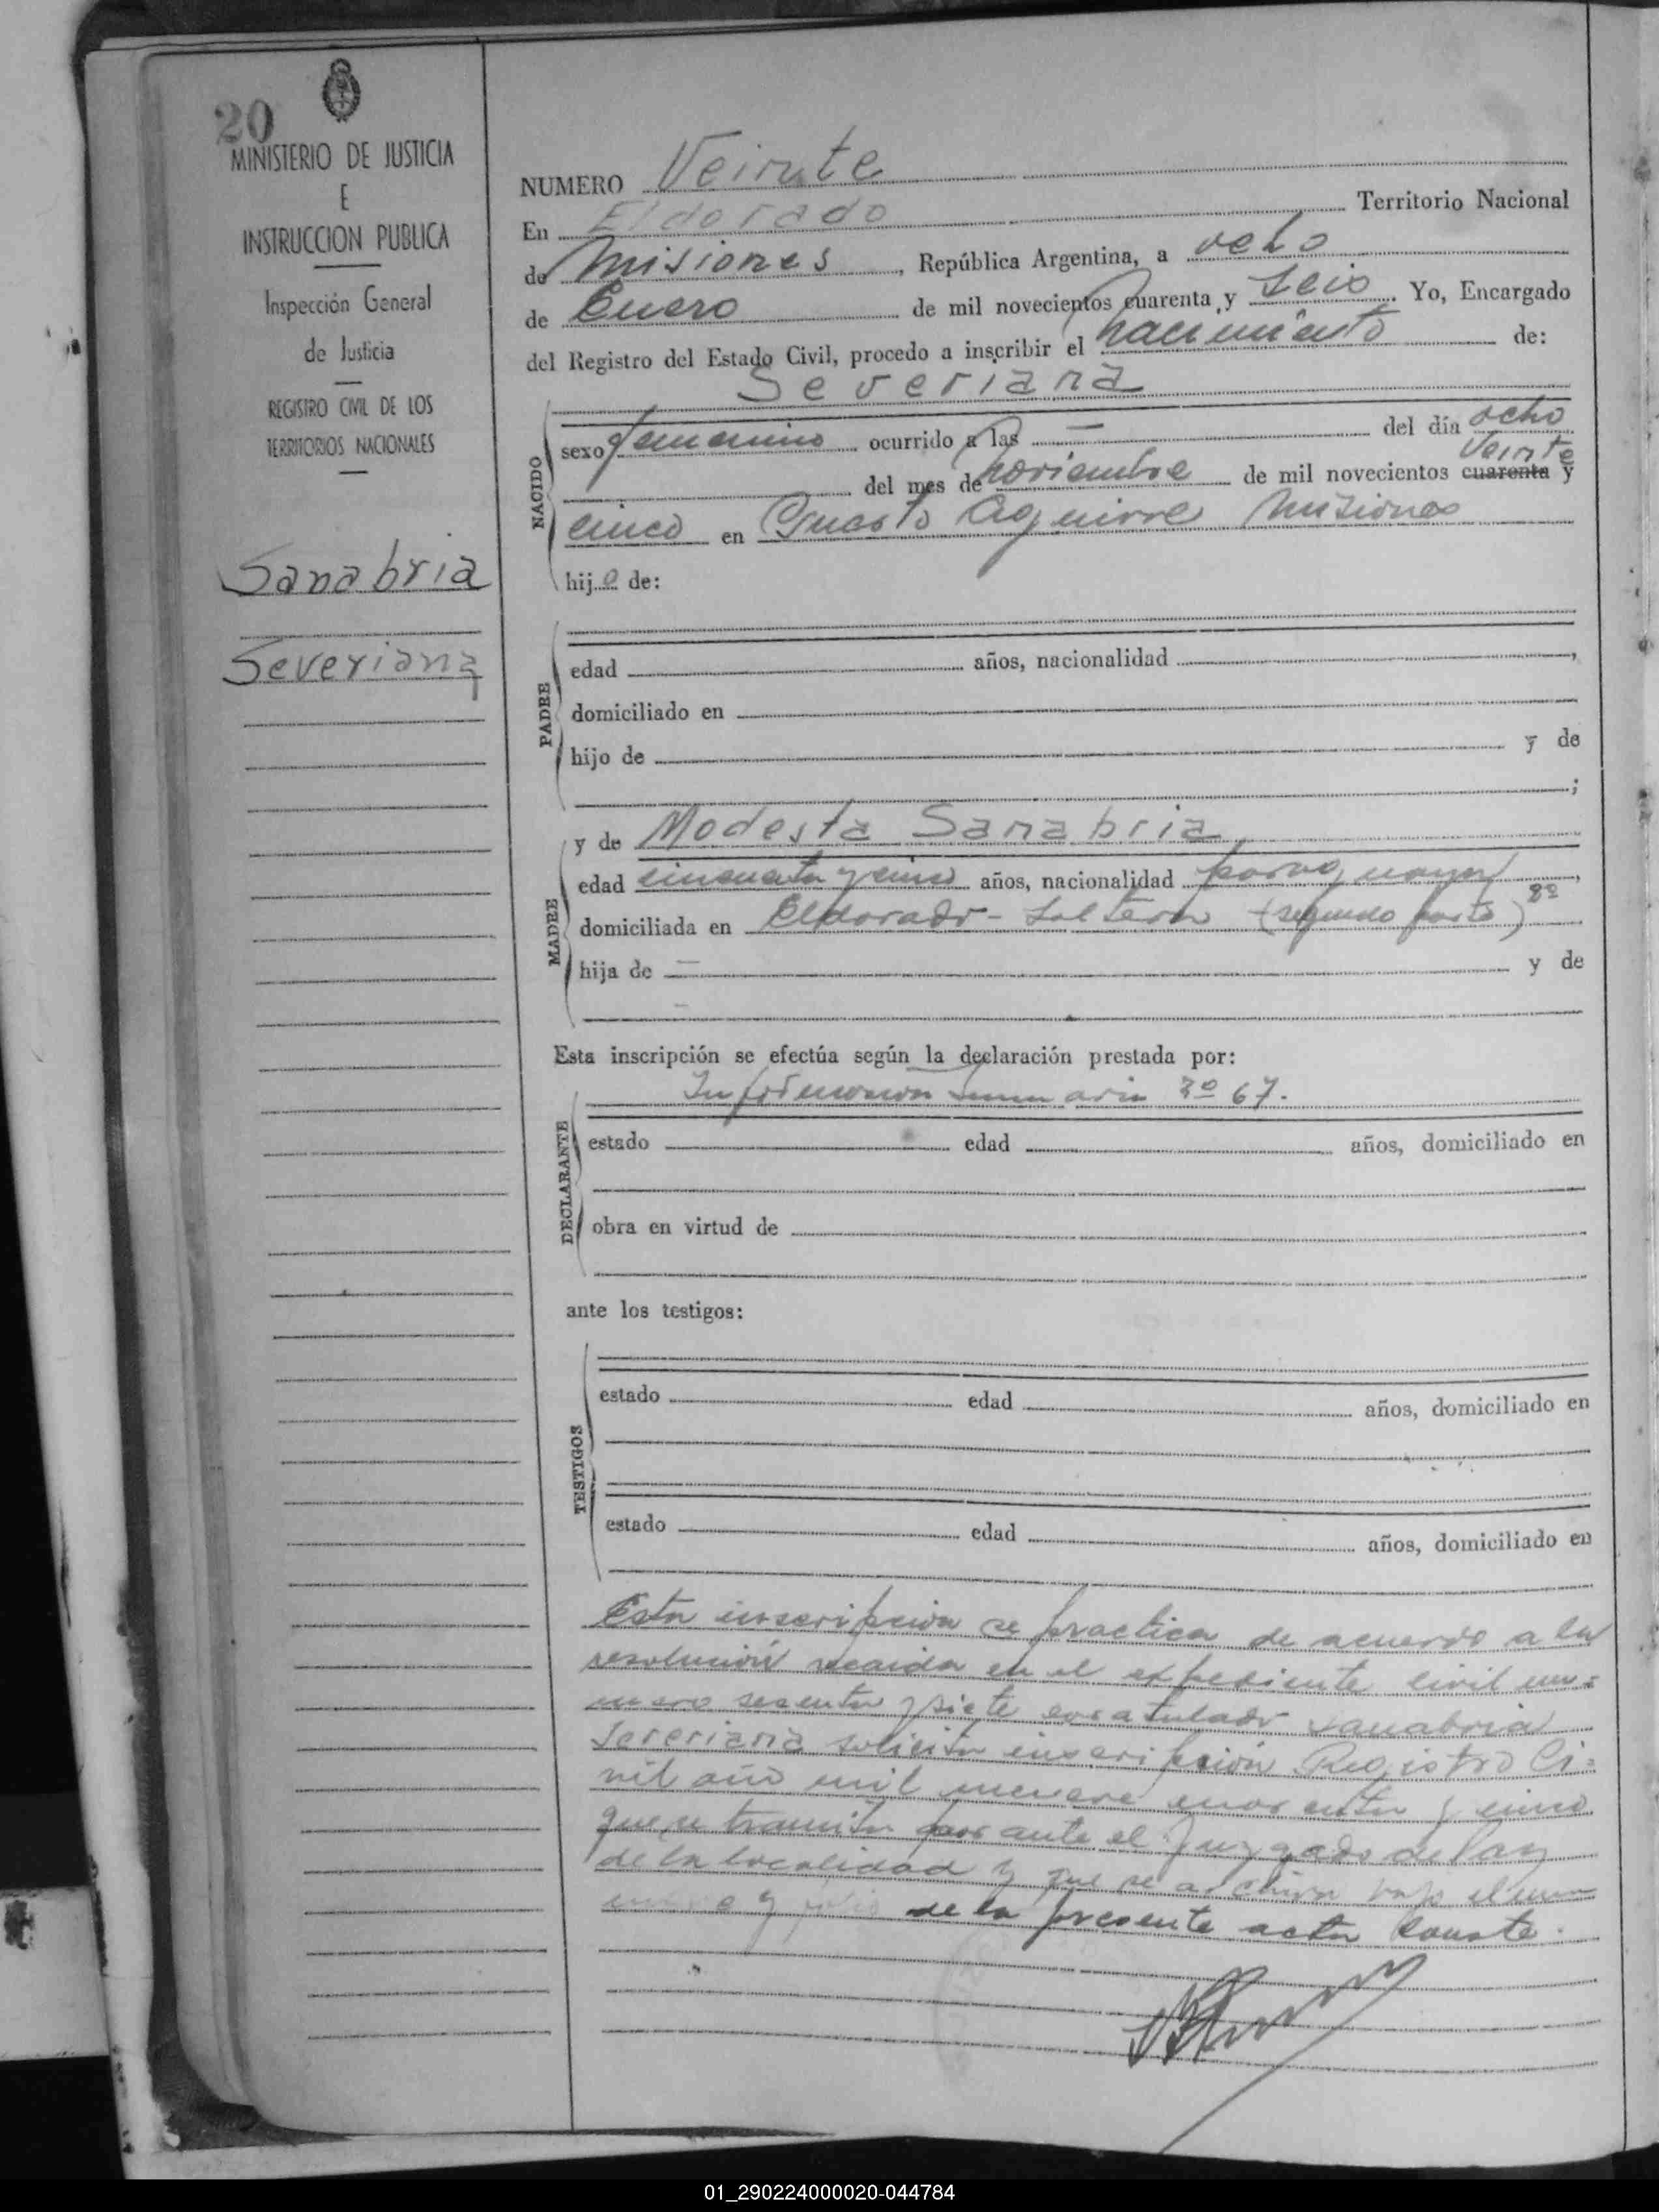 20
MINISTERIO DE JUSTICIA
E
INSTRUCCION PUBLICA
Inspección General
de Justicia
REGISTRO CIVIL DE LOS
TERRITORIOS NACIONALES
Sanabria
Severiana
NUMERO Veinte
En Eldorado Territorio Nacional
de Misiones, República Argentina, a ocho
de Enero de mil novecientos cuarenta y seis. Yo, Encargado
del Registro del Estado Civil, procedo a inscribir el nacimiento de:
Severiana
NACIDO
sexo femenino ocurrido a las — del día ocho
Veinte
del mes de noviembre de mil novecientos cuarenta y
cinco en Puesto Aguirre Misiones
hij o de:
PADRE
edad años, nacionalidad ,
domiciliado en
hijo de y de
;
MADRE
y de Modesta Sanabria
edad cincuenta y cinco años, nacionalidad paraguaya,
domiciliada en Eldorado - soltera (segundo parto) 2º
hija de — y de
Esta inscripción se efectúa según la declaración prestada por:
DECLARANTE
Informacion Sumaria 67.
estado edad años, domiciliado en
obra en virtud de
ante los testigos:
TESTIGOS
estado edad años, domiciliado en
estado edad años, domiciliado en
Esta inscripcion se practica de acuerdo a la
resolución recaida en el expediente civil nu=
mero sesenta y siete caratulado Sanabria
Severiana solicita inscripción Registro Ci=
vil año mil nueve cuarenta y cinco
que se tramita por ante el Juzgado de Paz
de la localidad y que se archiva bajo el num
y folio de la presente acta. Conste.
01_290224000020-044784